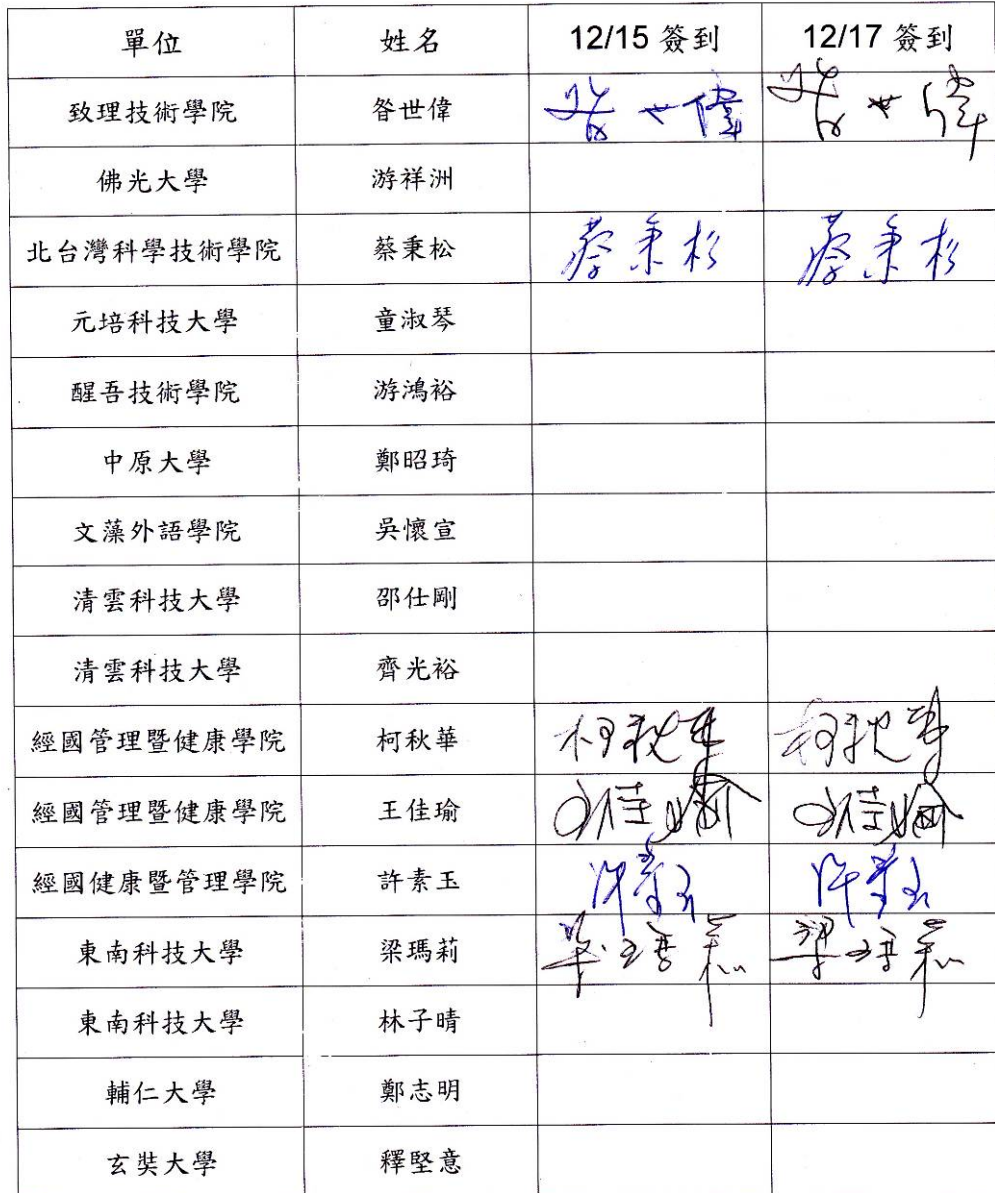 單位 姓名 12/15 簽到 12/17 簽到
致理技術學院 昝世偉 昝世偉 昝世偉
佛光大學 游祥洲
北台灣科學技術學院 蔡秉松 蔡秉松 蔡秉松
元培科技大學 童淑琴
醒吾技術學院 游鴻裕
中原大學 鄭昭琦
文藻外語學院 吳懷宣
清雲科技大學 邵仕剛
清雲科技大學 齊光裕
經國管理暨健康學院 柯秋華 柯秋華 柯秋華
經國管理暨健康學院 王佳瑜 王佳瑜 王佳瑜
經國健康暨管理學院 許素玉 許素玉 許素玉
東南科技大學 梁瑪莉
東南科技大學 林子晴
輔仁大學 鄭志明
玄奘大學 釋堅意